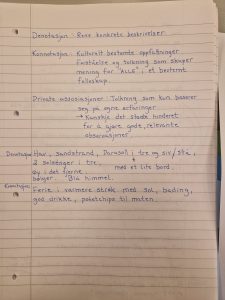 Denotasjon: Rene konkrete beskrivelser
Konnotasjon: Kulturelt bestemte oppfatninger
forståelse og tolkning som skaper
mening for "ALLE" i et bestemt
fellesskap.
Private assosiasjoner: Tolkning som kun baserer
seg på egne erfaringer
→ Kanskje det største hinderet
for å gjøre gode, relevante
observasjoner.
Denotasjon: Hav, sandstrand, Parasoll i tre og siv/strå,
2 solsenger i tre, med et lite bord,
øy i det fjerne
Blå himmel.
Konnotasjon:
Ferie i varmere strøk med sol, bading,
god drikke, potetchips til maten.